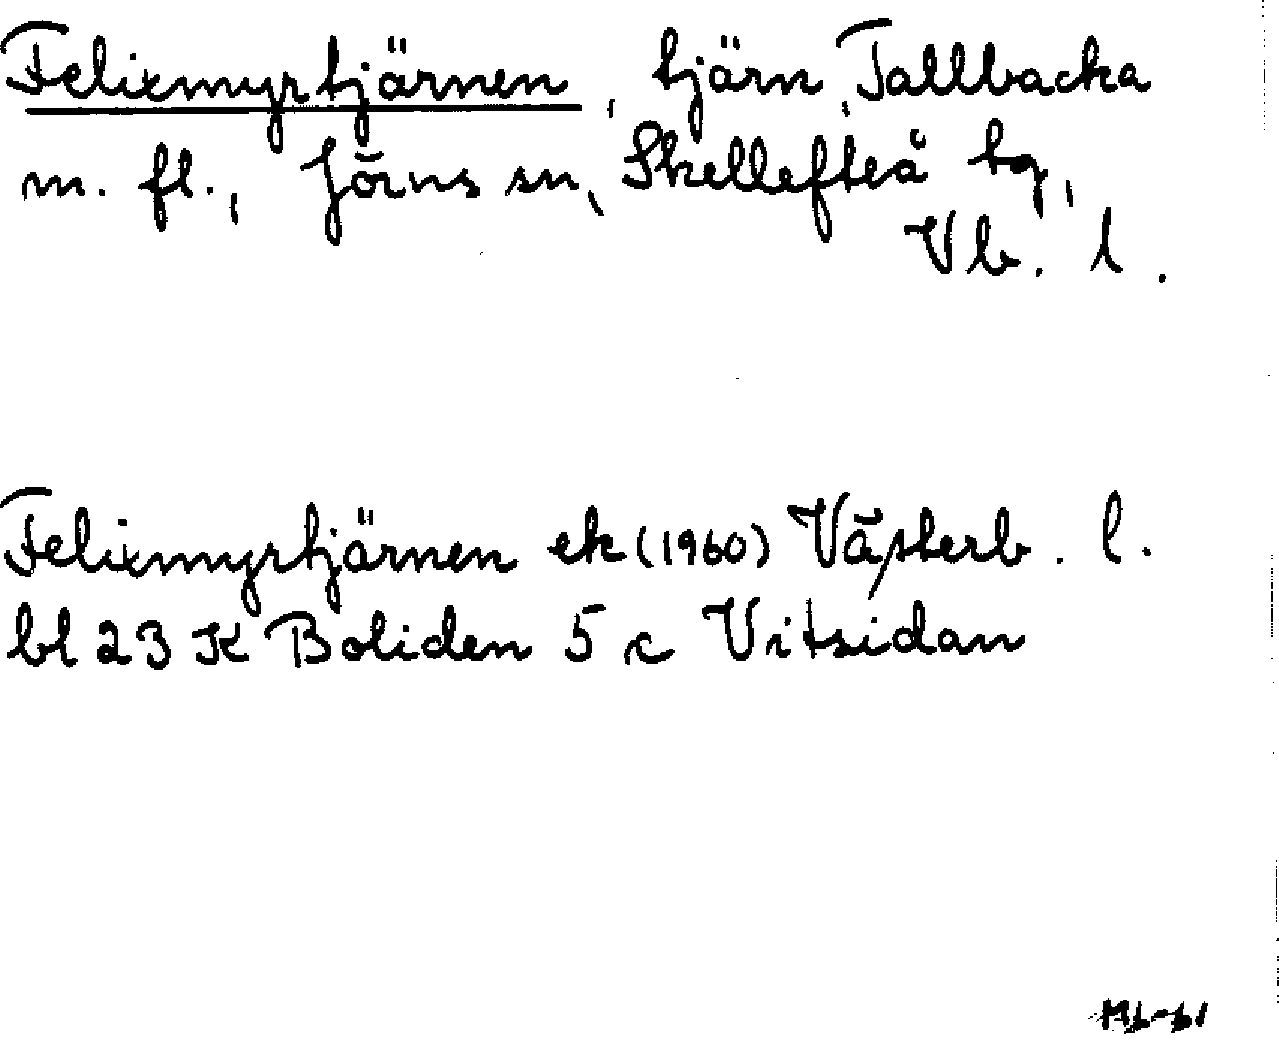 Felixmyrtjärnen, tjärn, Tallbacka
m. fl., Jörns sn, Skellefteå tg,
Vb. l.
Felixmyrtjärnen ek (1960) Västerb. l.
bl 23 K Boliden 5 c Vitsidan